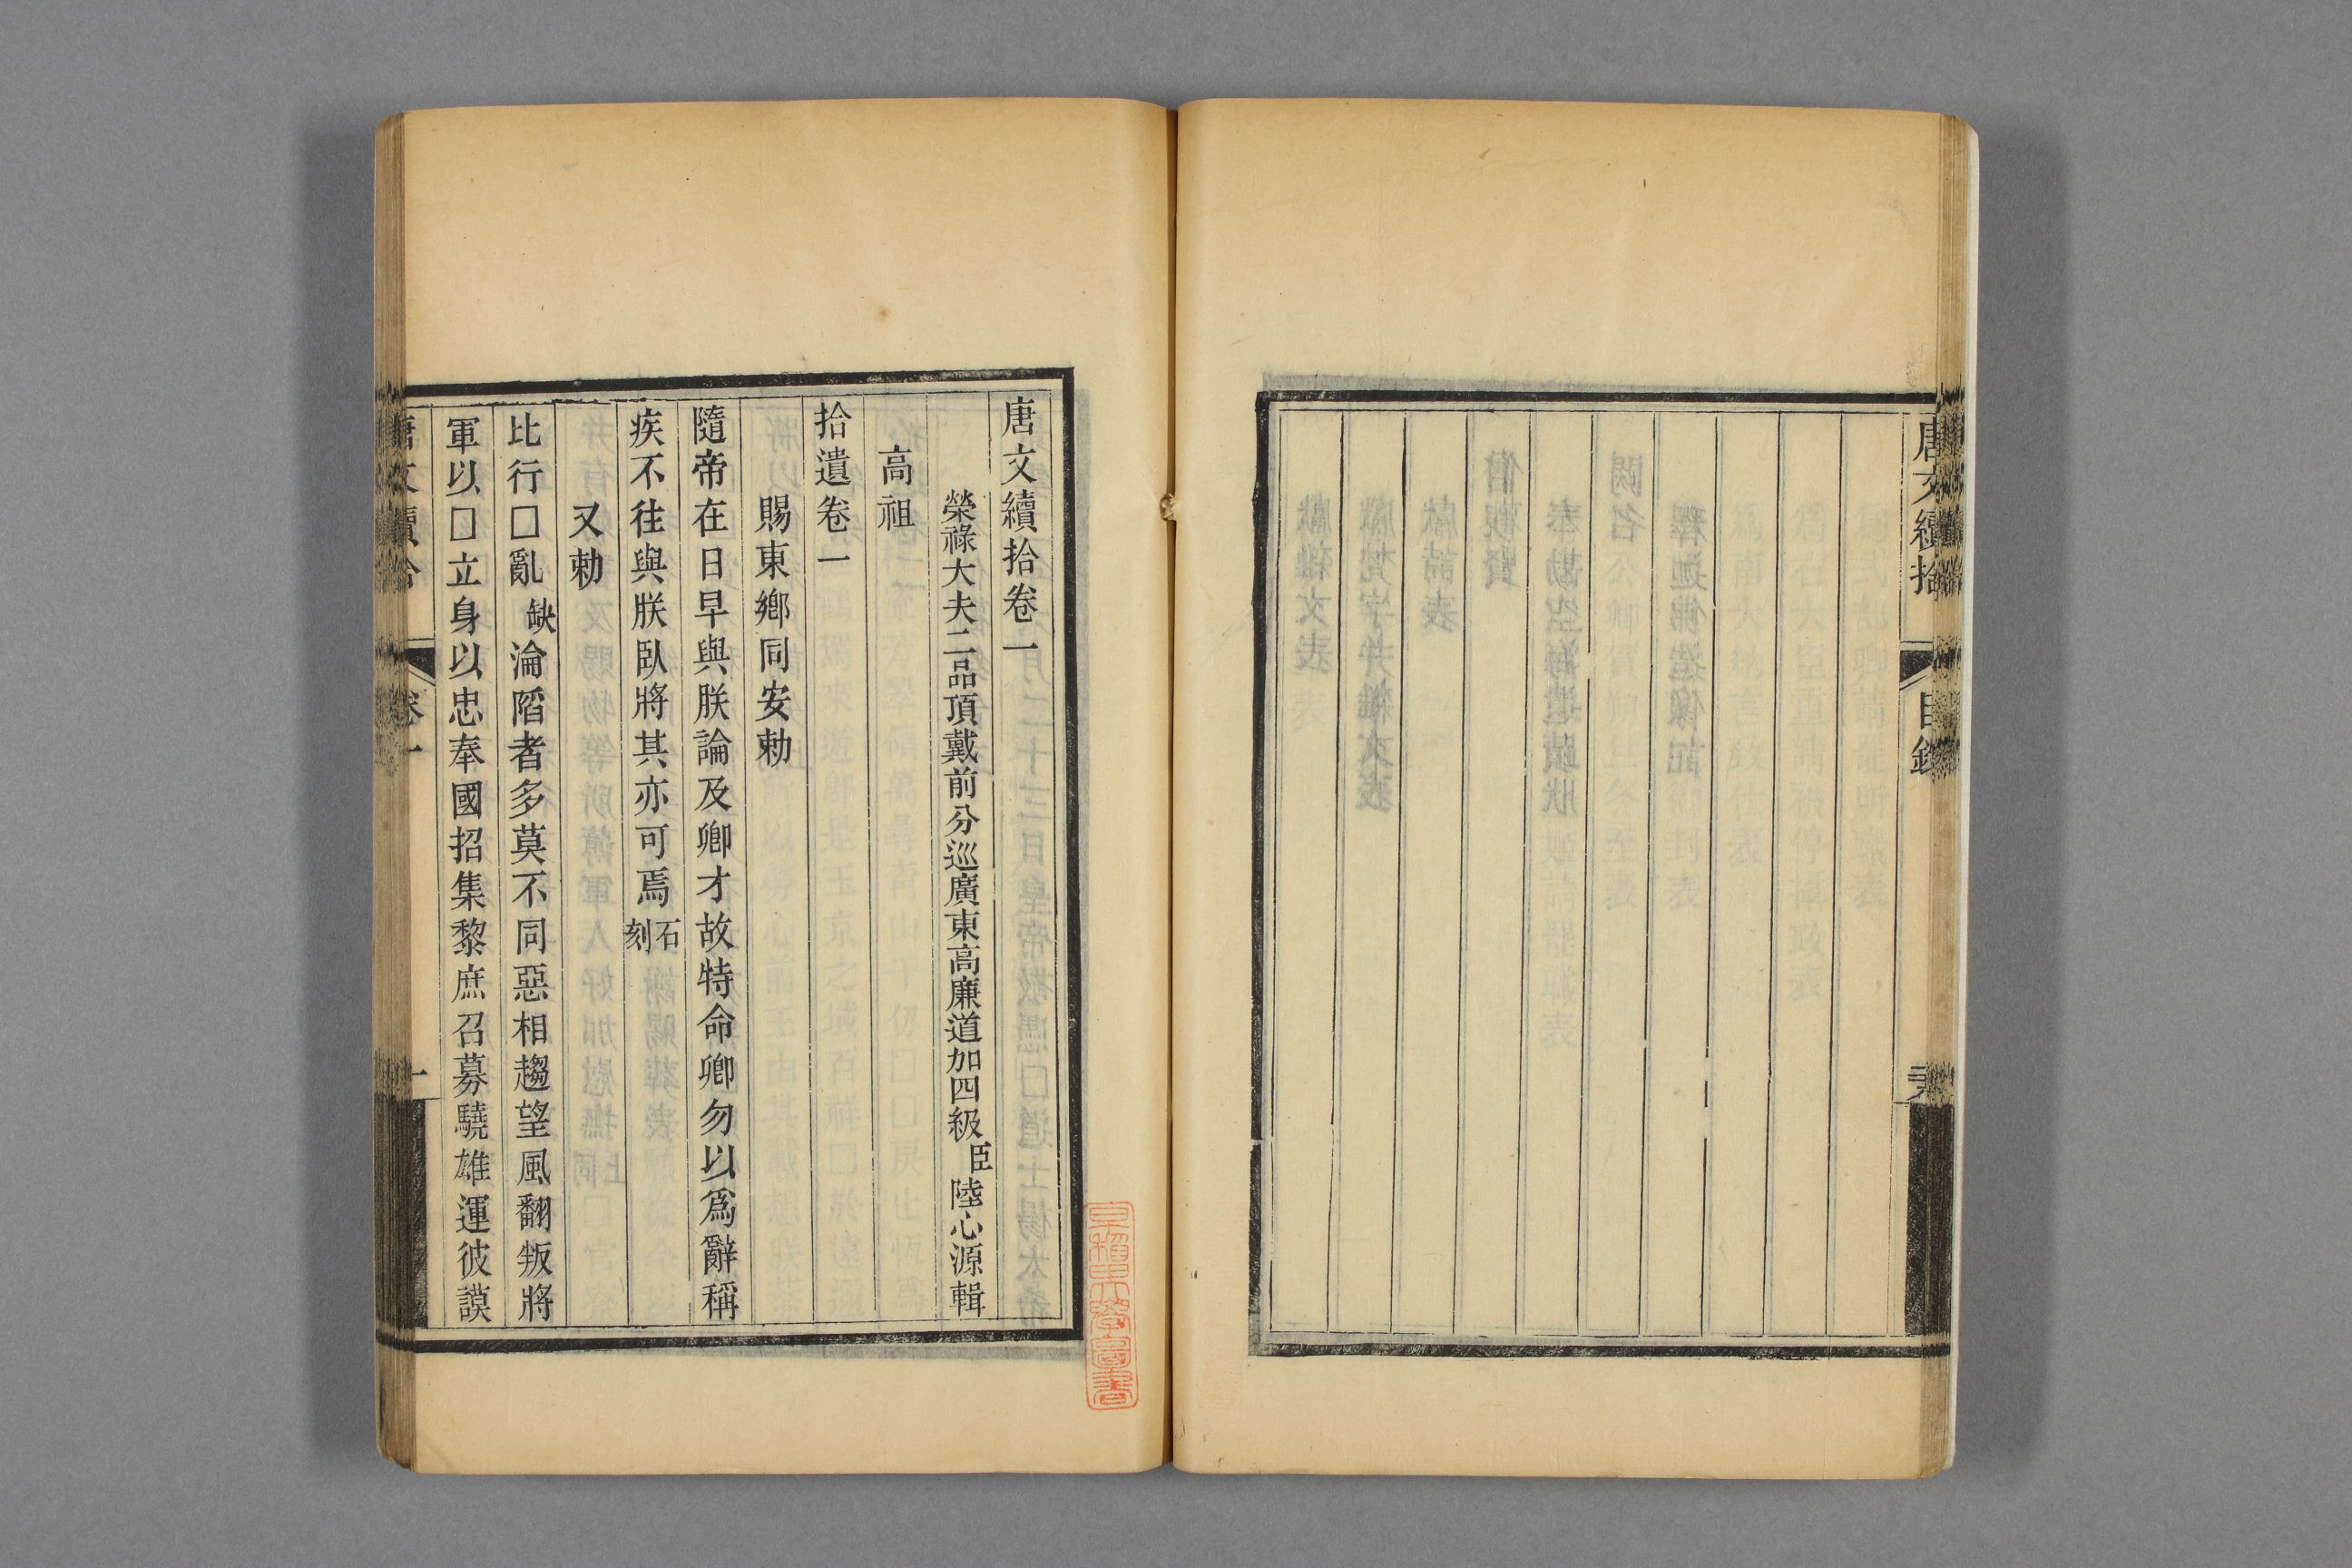 唐文續拾
目錄
唐文續拾卷一
榮祿大夫二品頂戴前分巡廣東高廉道加四級臣陸心源輯
高祖
拾遺卷一
賜東鄉同安勅
隨帝在日早與朕論及卿才故特命卿勿以爲辭稱
疾不往與朕臥將其亦可焉石刻
又勅
比行□亂缺淪陷者多莫不同惡相趨望風翻叛將
軍以□立身以忠奉國招集黎庶召募驍雄運彼謨
唐文續拾
卷一
一
早稻田大學圖書